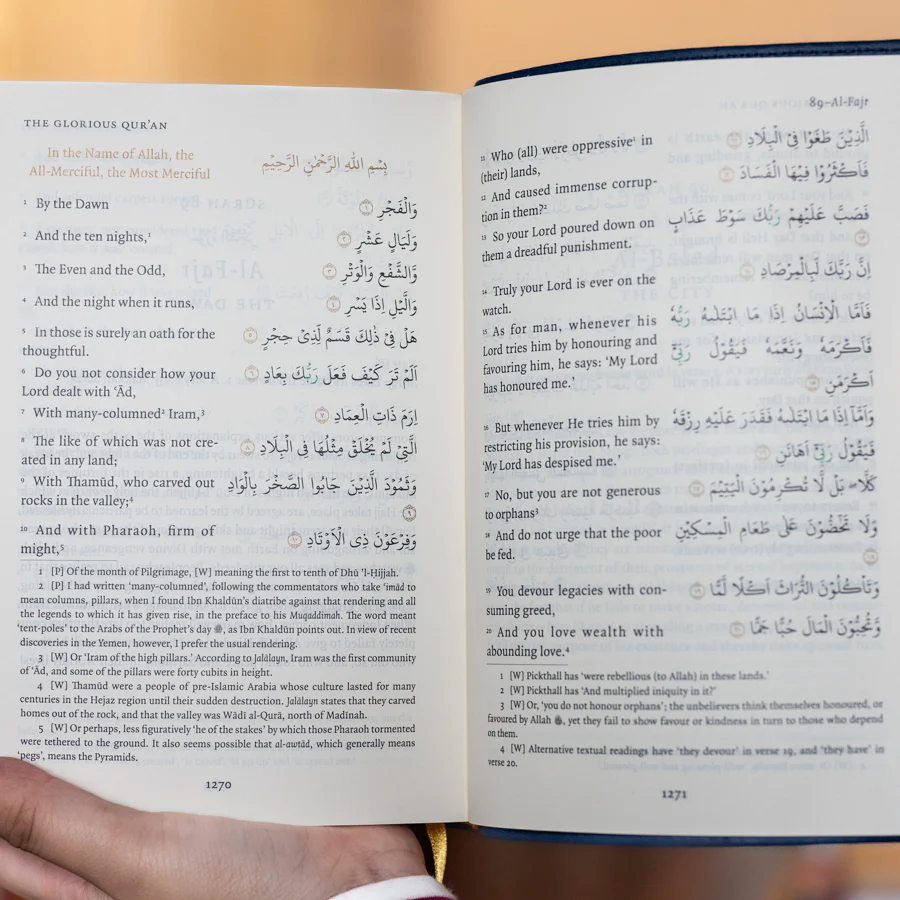 THE GLORIOUS QUR'AN
In the Name of Allah, the
All-Merciful, the Most Merciful
بِسْمِ اللهِ الرَّحْمٰنِ الرَّحِيْمِ
1 By the Dawn
وَالْفَجْرِ ١
2 And the ten nights,1
وَلَيَالٍ عَشْرٍ ٢
3 The Even and the Odd,
وَّالشَّفْعِ وَالْوَتْرِ ٣
4 And the night when it runs,
وَالَّيْلِ اِذَا يَسْرِ ٤
5 In those is surely an oath for the
thoughtful.
هَلْ فِيْ ذٰلِكَ قَسَمٌ لِّذِيْ حِجْرٍ ٥
6 Do you not consider how your
Lord dealt with ʿĀd,
اَلَمْ تَرَ كَيْفَ فَعَلَ رَبُّكَ بِعَادٍ ٦
7 With many-columned2 Iram,3
اِرَمَ ذَاتِ الْعِمَادِ ٧
8 The like of which was not cre-
ated in any land;
الَّتِيْ لَمْ يُخْلَقْ مِثْلُهَا فِي الْبِلَادِ ٨
9 With Thamūd, who carved out
rocks in the valley;4
وَثَمُوْدَ الَّذِيْنَ جَابُوا الصَّخْرَ بِالْوَادِ
٩
10 And with Pharaoh, firm of
might,5
وَفِرْعَوْنَ ذِي الْاَوْتَادِ ١٠
1 [P] Of the month of Pilgrimage, [W] meaning the first to tenth of Dhū 'l-Ḥijjah.
2 [P] I had written 'many-columned', following the commentators who take ʿimād to
mean columns, pillars, when I found Ibn Khaldūn's diatribe against that rendering and all
the legends to which it has given rise, in the preface to his Muqaddimah. The word meant
'tent-poles' to the Arabs of the Prophet's day ﷺ, as Ibn Khaldūn points out. In view of recent
discoveries in the Yemen, however, I prefer the usual rendering.
3 [W] Or 'Iram of the high pillars.' According to Jalālayn, Iram was the first community
of ʿĀd, and some of the pillars were forty cubits in height.
4 [W] Thamūd were a people of pre-Islamic Arabia whose culture lasted for many
centuries in the Hejaz region until their sudden destruction. Jalālayn states that they carved
homes out of the rock, and that the valley was Wādī al-Qurā, north of Madīnah.
5 [W] Or perhaps, less figuratively 'he of the stakes' by which those Pharaoh tormented
were tethered to the ground. It also seems possible that al-awtād, which generally means
'pegs', means the Pyramids.
1270
89–Al-Fajr
11 Who (all) were oppressive1 in
(their) lands,
الَّذِيْنَ طَغَوْا فِي الْبِلَادِ ١١
12 And caused immense corrup-
tion in them?2
فَاَكْثَرُوْا فِيْهَا الْفَسَادَ ١٢
13 So your Lord poured down on
them a dreadful punishment.
فَصَبَّ عَلَيْهِمْ رَبُّكَ سَوْطَ عَذَابٍ
١٣
14 Truly your Lord is ever on the
watch.
اِنَّ رَبَّكَ لَبِالْمِرْصَادِ ١٤
15 As for man, whenever his
Lord tries him by honouring and
favouring him, he says: 'My Lord
has honoured me.'
فَاَمَّا الْاِنْسَانُ اِذَا مَا ابْتَلٰىهُ رَبُّهٗ
فَاَكْرَمَهٗ وَنَعَّمَهٗ فَيَقُوْلُ رَبِّيْٓ
اَكْرَمَنِ ١٥
16 But whenever He tries him by
restricting his provision, he says:
'My Lord has despised me.'
وَاَمَّآ اِذَا مَا ابْتَلٰىهُ فَقَدَرَ عَلَيْهِ رِزْقَهٗ
فَيَقُوْلُ رَبِّيْٓ اَهَانَنِ ١٦
17 No, but you are not generous
to orphans3
كَلَّا بَلْ لَّا تُكْرِمُوْنَ الْيَتِيْمَ ١٧
18 And do not urge that the poor
be fed.
وَلَا تَحٰٓضُّوْنَ عَلٰى طَعَامِ الْمِسْكِيْنِ
١٨
19 You devour legacies with con-
suming greed,
وَتَاْكُلُوْنَ التُّرَاثَ اَكْلًا لَّمًّا ١٩
20 And you love wealth with
abounding love.4
وَّتُحِبُّوْنَ الْمَالَ حُبًّا جَمًّا ٢٠
1 [W] Pickthall has 'were rebellious (to Allah) in these lands.'
2 [W] Pickthall has 'And multiplied iniquity in it?'
3 [W] Or, 'you do not honour orphans'; the unbelievers think themselves honoured, or
favoured by Allah ﷻ, yet they fail to show favour or kindness in turn to those who depend
on them.
4 [W] Alternative textual readings have 'they devour' in verse 19, and 'they have' in
verse 20.
1271